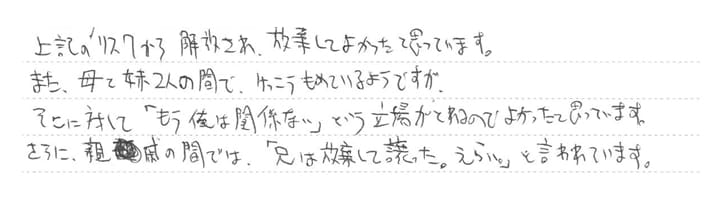 上記のリスクから解放され、放棄してよかったと思っています。
また、母と妹2人の間で、けっこうもめているようですが、
そこに対して「もう俺は関係ない」という立場がとれるのでよかったと思っています。
さらに、親戚の間では、「兄は放棄して譲った。えらい。」と言われています。